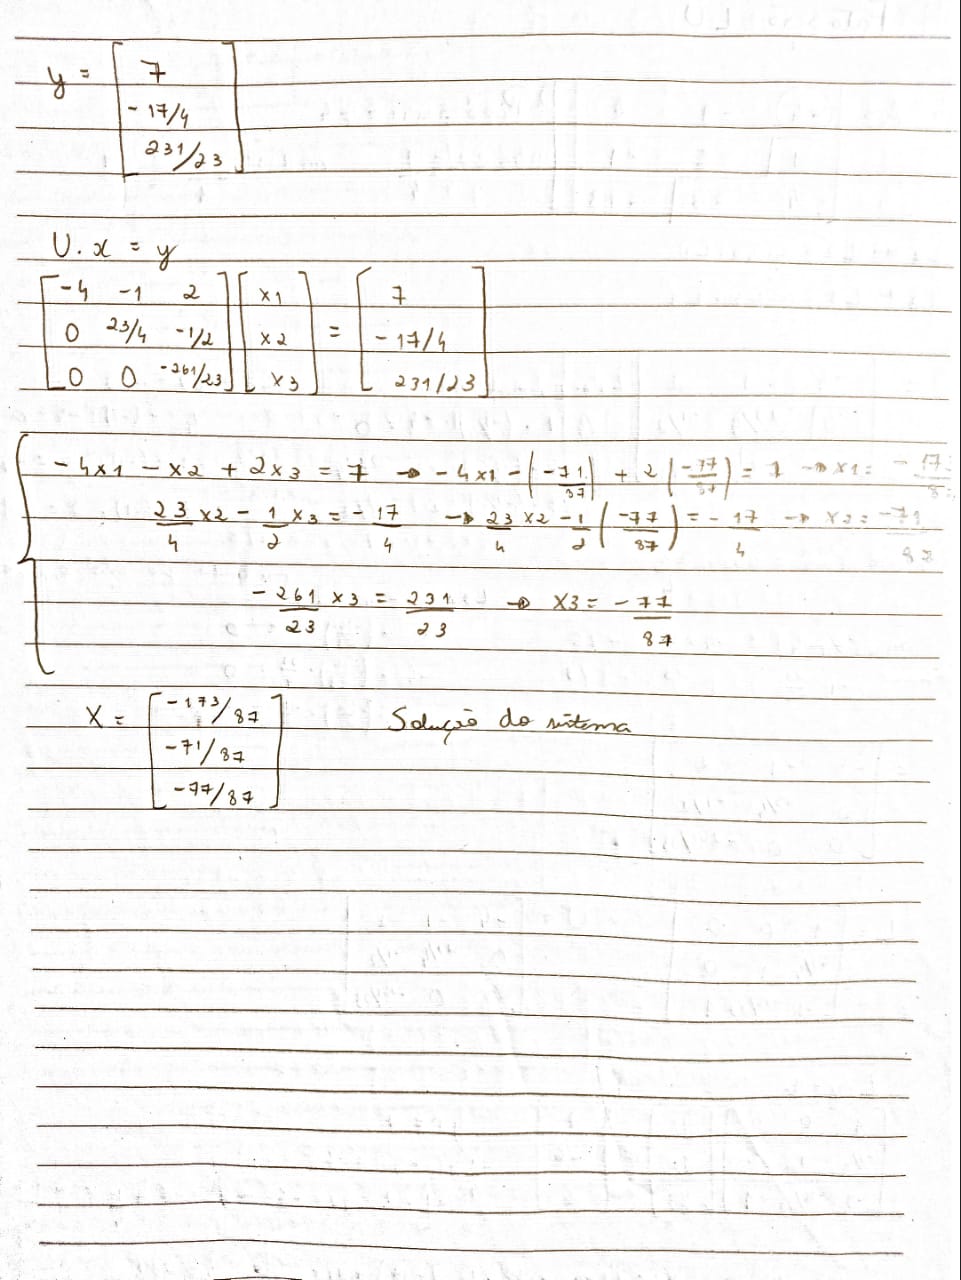 y = [ 7
- 17/4
231/23 ]
U. x = y
[ -4 -1 2 ] [ x1 ] = [ 7 ]
[ 0 23/4 -1/2 ] [ x2 ] = [ - 17/4 ]
[ 0 0 -261/23 ] [ x3 ] [ 231/23 ]
{ - 4x1 - x2 + 2x3 = 7 → - 4x1 - (-71/87) + 2 (-77/87) = 7 → x1 = - 17
23/4 x2 - 1/2 x3 = - 17/4 → 23/4 x2 - 1/2 (-77/87) = - 17/4 → x2 = -71/87
- 261/23 x3 = 231/23 → x3 = - 77/87
X = [ -173/87
-71/87
-77/87 ] Solução do sistema